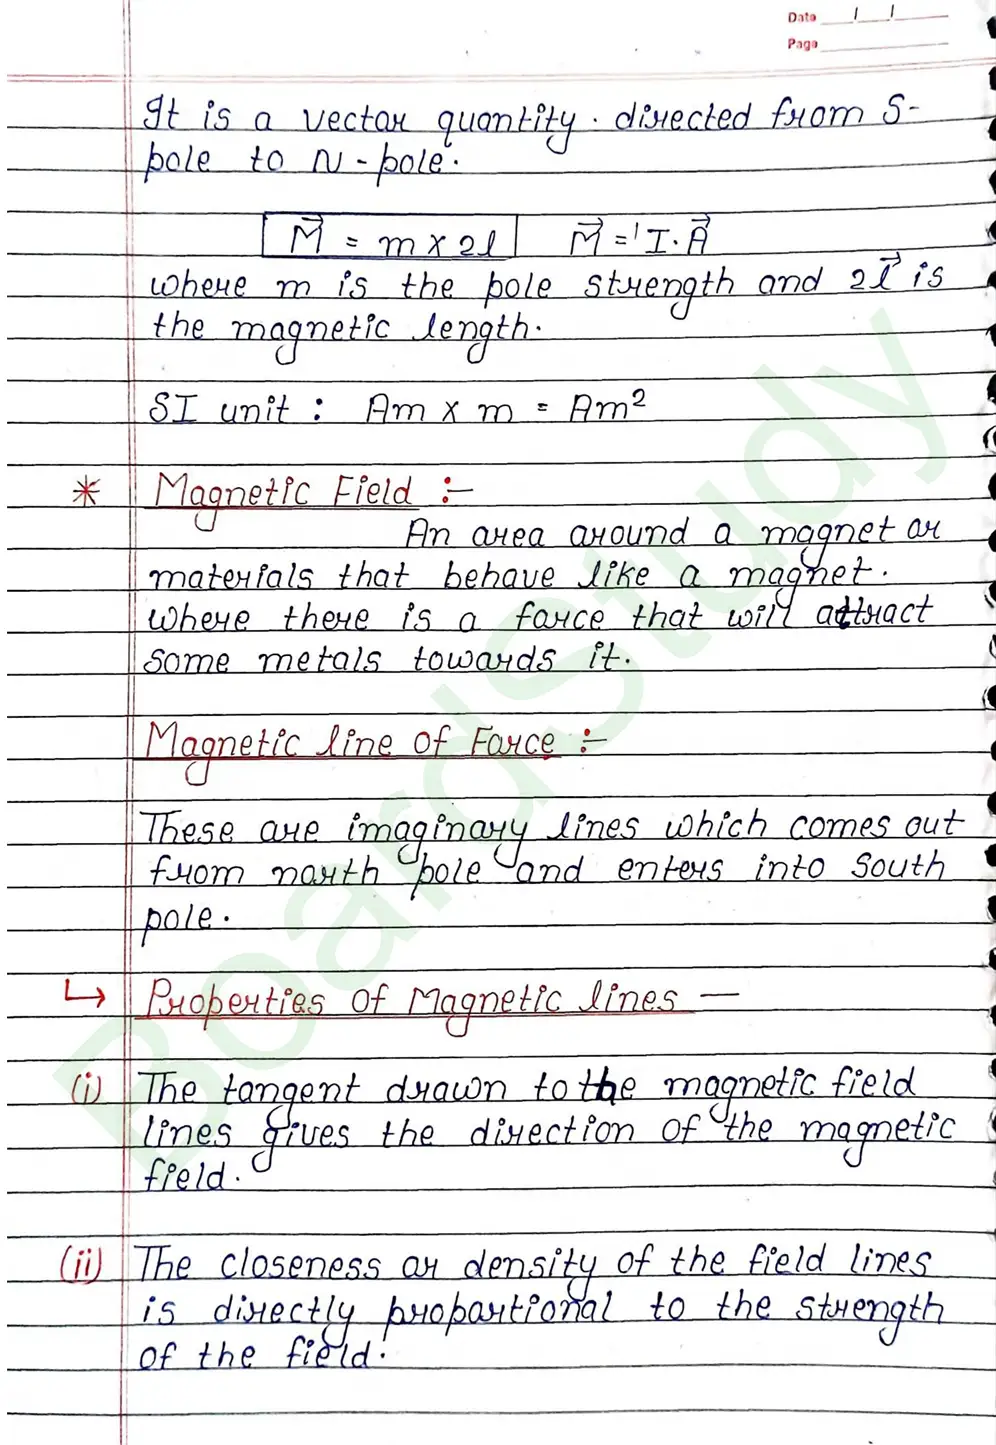 Date
Page
It is a vector quantity. directed from S-
pole to N-pole.
M⃗ = m x 2l    M⃗ = I.A⃗
where m is the pole strength and 2l⃗ is
the magnetic length.
SI unit : Am x m = Am²
* Magnetic Field :-
An area around a magnet or
materials that behave like a magnet.
where there is a force that will attract
some metals towards it.
Magnetic line of Force :-
These are imaginary lines which comes out
from north pole and enters into south
pole.
↳ Properties of Magnetic lines —
(i) The tangent drawn to the magnetic field
lines gives the direction of the magnetic
field.
(ii) The closeness or density of the field lines
is directly proportional to the strength
of the field.
BoardStudy